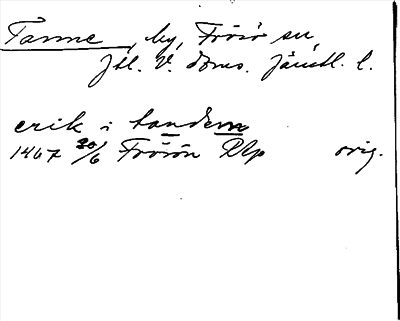 Tanne, by, Frösö sn,
Jtl. v. doms. Jämtl. l.
erik i tandem
1467 20/6 Frösön RAp orig.